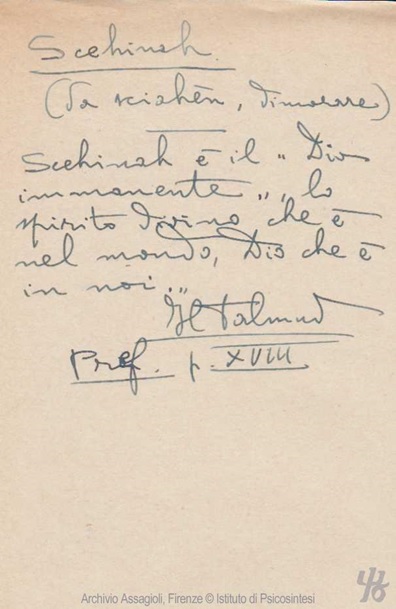 Scehinah
(da sciahēn, dimorare)
Scehinah è il „ Dio
immanente „, lo
spirito divino che è
nel mondo, Dio che è
in noi „
Il Talmud
Pref. p. XVIII
Archivio Assagioli, Firenze © Istituto di Psicosintesi